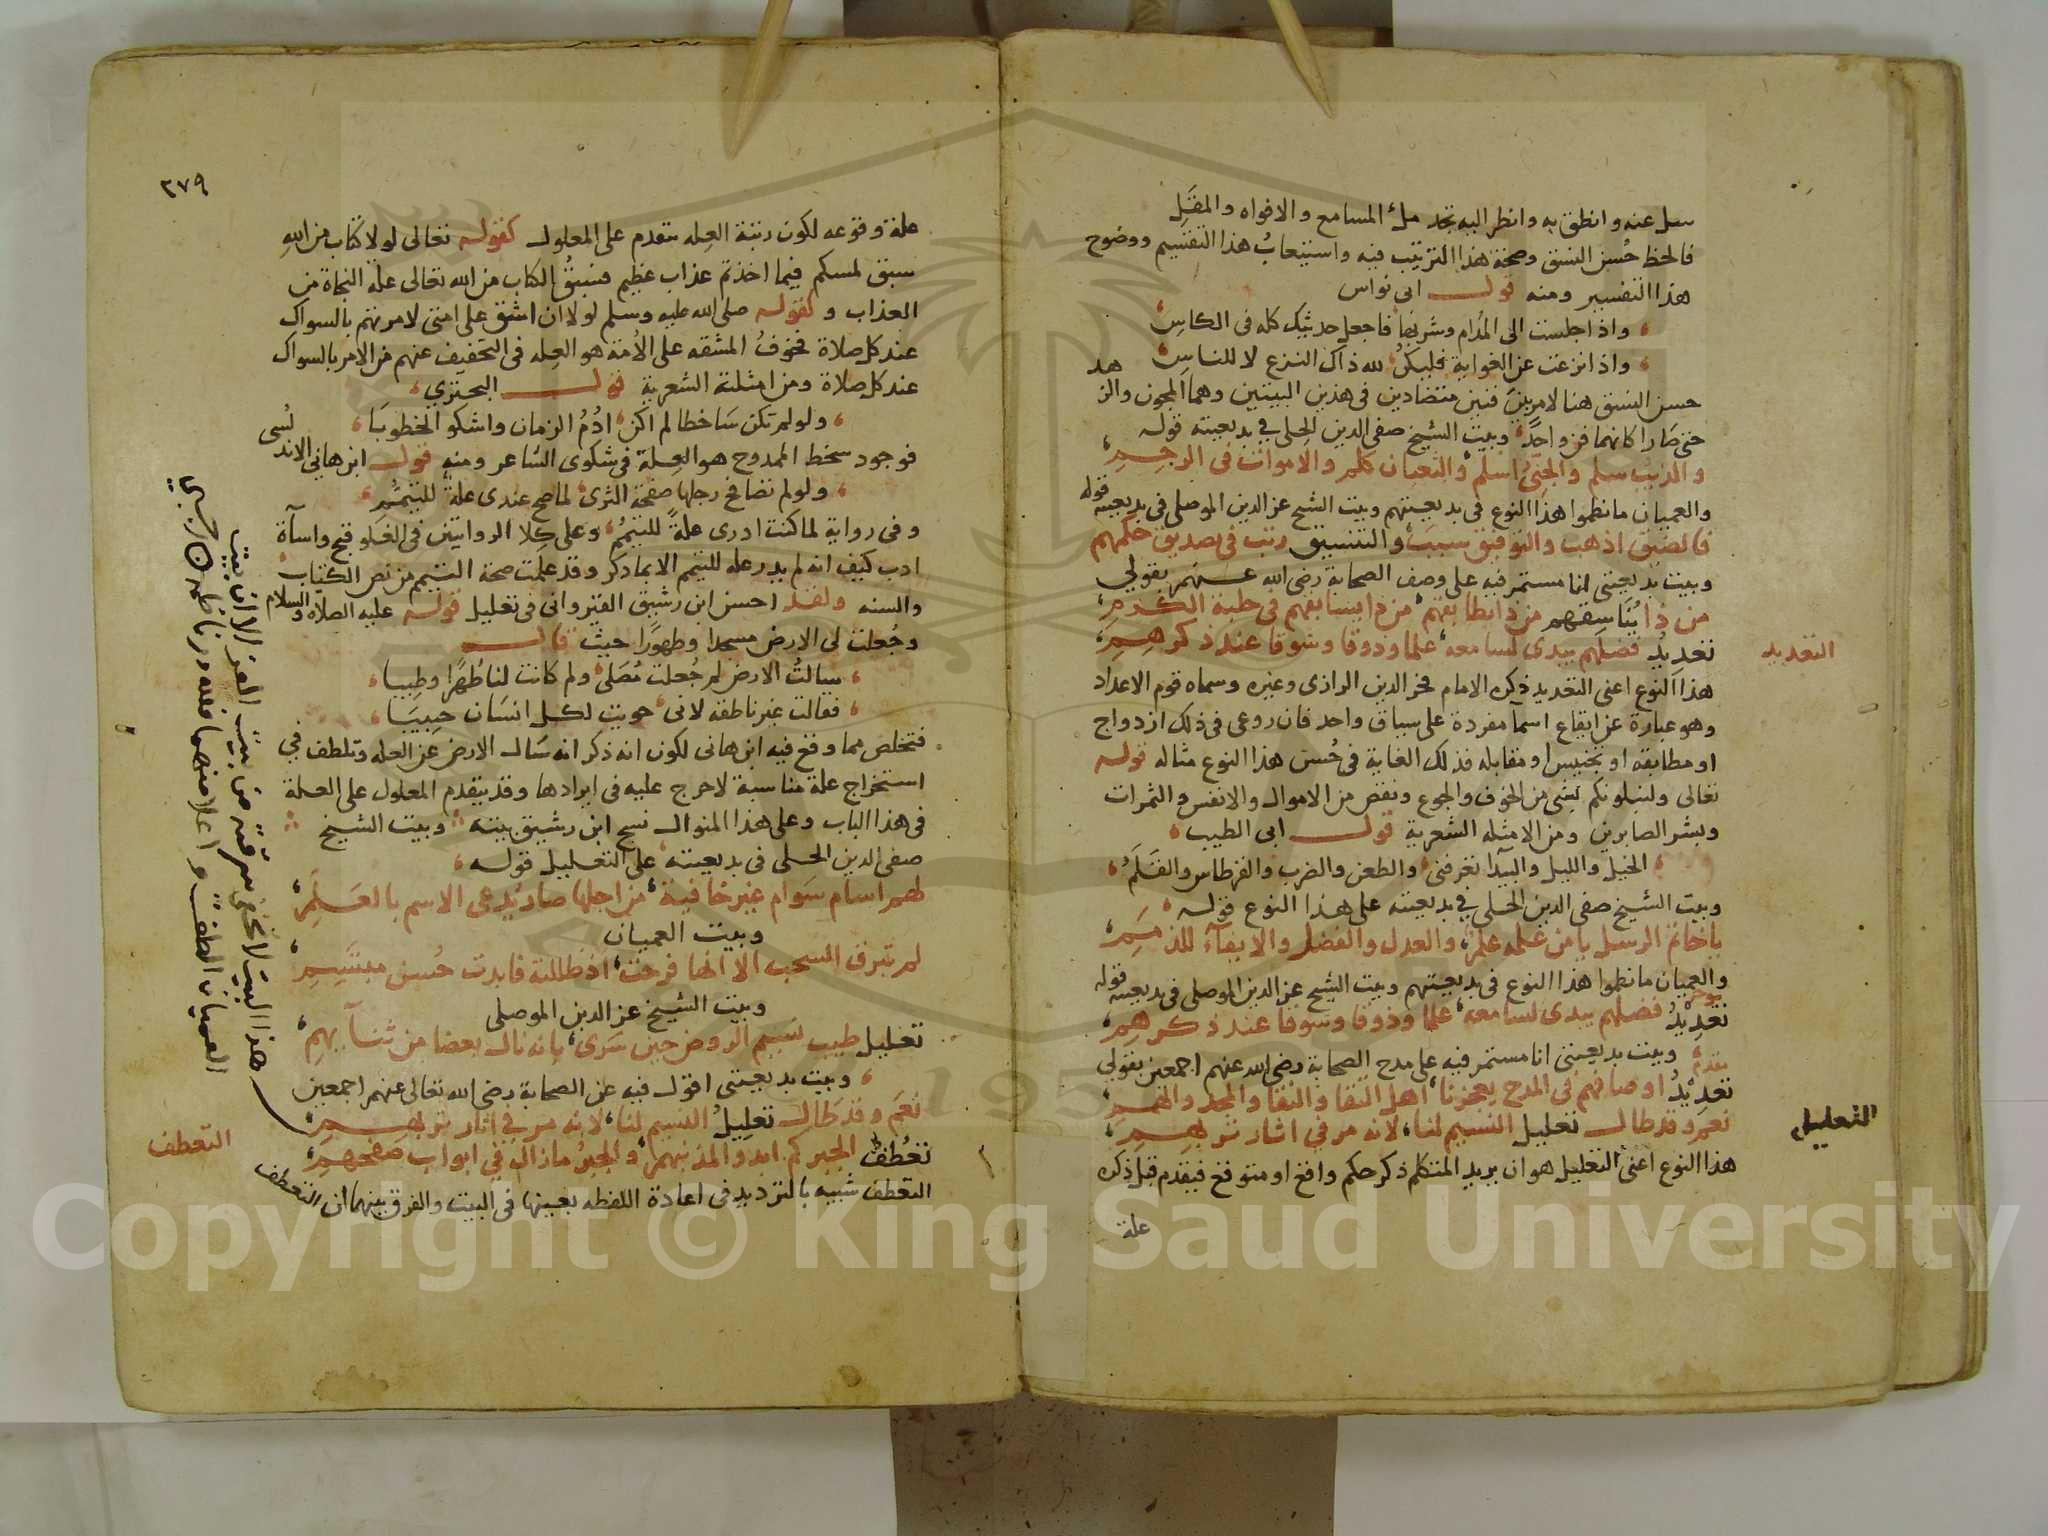 سل عنه وانطق به وانظر اليه تجد ملأ المسامع والافواه والمقل
فالحظ حُسن النسق وصحة هذا الترتيب فيه واستيعاب هذا التقسيم ووضوح
هذا التفسير ومنه قول ابى نواس
واذا جلست الى المُدام وشربها فاجعل حديثك كله فى الكاس
واذا نزعت عن الغواية فليكن لله ذاك النزع لا للناس
حسن النسق هنا لامرين فنين متضادين فى هذين البيتين وهما المجون والزهد
حتى صارا كانهما فن واحد وبيت الشيخ صفى الدين الحلى في بديعيته قوله
والذيب سلم والجنى اسلم والثعبان كلم والاموات فى الرجم
والعميان ما نظموا هذا النوع فى بديعيتهم وبيت الشيخ عز الدين الموصلى فى بديعيته قوله
فالضيق اذهب والتوفيق سبب والتنسيق رتب فى تصديق حكمهم
وبيت بديعيتى انا مستمر فيه على وصف الصحابة رضى الله عنهم بقولي
من ذا يناسقهم من ذا يطابقهم من ذا يسابقهم فى حلبة الكرم
التعديد
تعديد فضلهم يبدى لسامعه علما وذوقا وشوقا عند ذكرهم
هذا النوع اعنى التعديد ذكره الامام فخر الدين الرازى وغيره وسماه قوم الاعداد
وهو عبارة عن ايقاع اسمآ مفردة على سياق واحد فان روعى فى ذلك ازدواج
او مطابقه او تجنيس او مقابله فذلك الغاية فى حُسن هذا النوع مثاله قوله
تعالى ولنبلونكم بشى من الخوف والجوع ونقص من الاموال والانفس والثمرات
وبشر الصابرين ومن الامثله الشعرية قول ابى الطيب
الخيل والليل والبيدا تعرفنى والطعن والضرب والقرطاس والقلم
وبيت الشيخ صفى الدين الحلى في بديعيته على هذا النوع قوله
يا خاتم الرسل يا من علمه علم والعدل والفضل والايفآء للذمم
والعميان ما نظموا هذا النوع فى بديعيتهم وبيت الشيخ عز الدين الموصلى فى بديعيته قوله
تعديد فضلهم يبدى لسامعه علما وذوقا وشوقا عند ذكرهم
وبيت بديعيتى انا مستمر فيه على مدح الصحابة رضى الله عنهم اجمعين بقولى
تعديد اوصافهم فى المدح يعجزنا اهل التقا والنقا والمجد والهمم
التعليل
نعم وقد طال تعليل النسيم لنا لانه مر في اثار تربهم
هذا النوع اعنى التعليل هو ان يريد المتكلم ذكر حكم واقع او متوقع فيقدم قبل ذكره
علة
٣٧٩
علة وقوعه لكون رتبة العله تتقدم على المعلول كقوله تعالى لولا كتاب من الله
سبق لمسكم فيما اخذتم عذاب عظيم فسبقُ الكتاب من الله تعالى علة النجاة من
العذاب و كقوله صلى الله عليه وسلم لولا ان اشق على امتى لامرتهم بالسواك
عند كل صلاة فخوفُ المشقه على الأمة هو العله فى التخفيف عنهم من الامر بالسواك
عند كل صلاة ومن امثلته الشعرية قول البحتري
ولو لم تكن ساخطا لم اكن اذم الزمان واشكو الخطوبا
فوجود سخط الممدوح هو العلة فى شكوى الشاعر ومنه قول ابن هاني الاندلسى
ولو لم تصافح رجلها صفحة الثرى لما صح عندى علة للتيمم
وفى رواية لما كنت ادرى علةً للتيمم وعلى كلا الروايتين فى الغلو قبح واساآة
ادب كيف انه لم يدر عله للتيمم الا بما ذكر وقد علمت صحة التيمم من نص الكتاب
والسنه ولقد احسن ابن رشيق القيروانى فى تعليل قوله عليه الصلاه والسلام
وجُعلت لى الارض مسجدا وطهورا حيث قال
سالتُ الارض لم جُعلت مُصَلى ولم كانت لنا طُهرًا وطيبا
فقالت غير ناطقه لانى حويت لكل انسان حبيبا
فتخلص مما وقع فيه ابن هانى لكون انه ذكر انه سال الارض عن العله وتلطف في
استخراج علة مناسبة لا حرج عليه فى ايرادها وقد يتقدم المعلول على العلة
فى هذا الباب وعلى هذا المنوال نسج ابن رشيق بيته وبيت الشيخ
صفى الدين الحلى فى بديعيته على التعليل قوله
لهم اسام سوام غير خافية من اجلها صار يُدعى الاسم بالعلم
وبيت العميان
لم تبرق السحب الا انها فرحت اذ ظللته فابدت حُسن مبتسم
وبيت الشيخ عز الدين الموصلى
تعليل طيب نسيم الروض حين سَرى بانه نال بعضا من ثنآيهم
وبيت بديعيتى اقول فيه عن الصحابة رضى الله تعالى عنهم اجمعين
نعم وقد طال تعليلُ النسيم لنا لانه مر في اثار تربهم
التعطف
تعطف الجبر كم ابدوا لمذنبهم والجبر ما زال في ابواب صفحهم
التعطف شبيه بالترديد فى اعادة اللفظه بعينها فى البيت والفرق بينهما ان التعطف
هذا البيت لا يخفى سرقته من بيت العز الا ان بيت
العميان الطف و اعلا منهما فلله در ناظمه